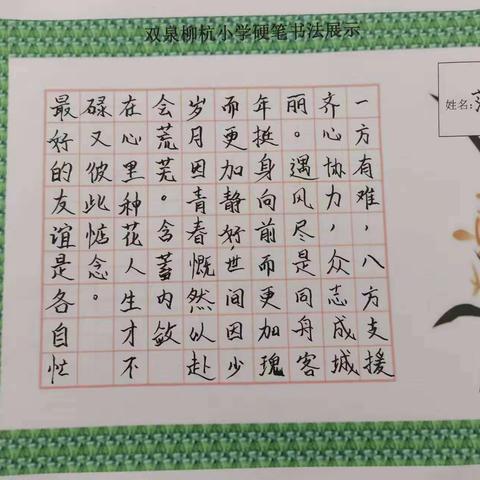 双泉柳杭小学硬笔书法展示
姓名:
一方有难，八方支援
齐心协力，众志成城
丽。遇风尽是同舟客
年挺身向前而更加瑰
而更加静好，世间因少
岁月因青春慨然以赴
会荒芜。含蓄内敛
在心里种花人生才不
碌又彼此惦念。
最好的友谊是各自忙